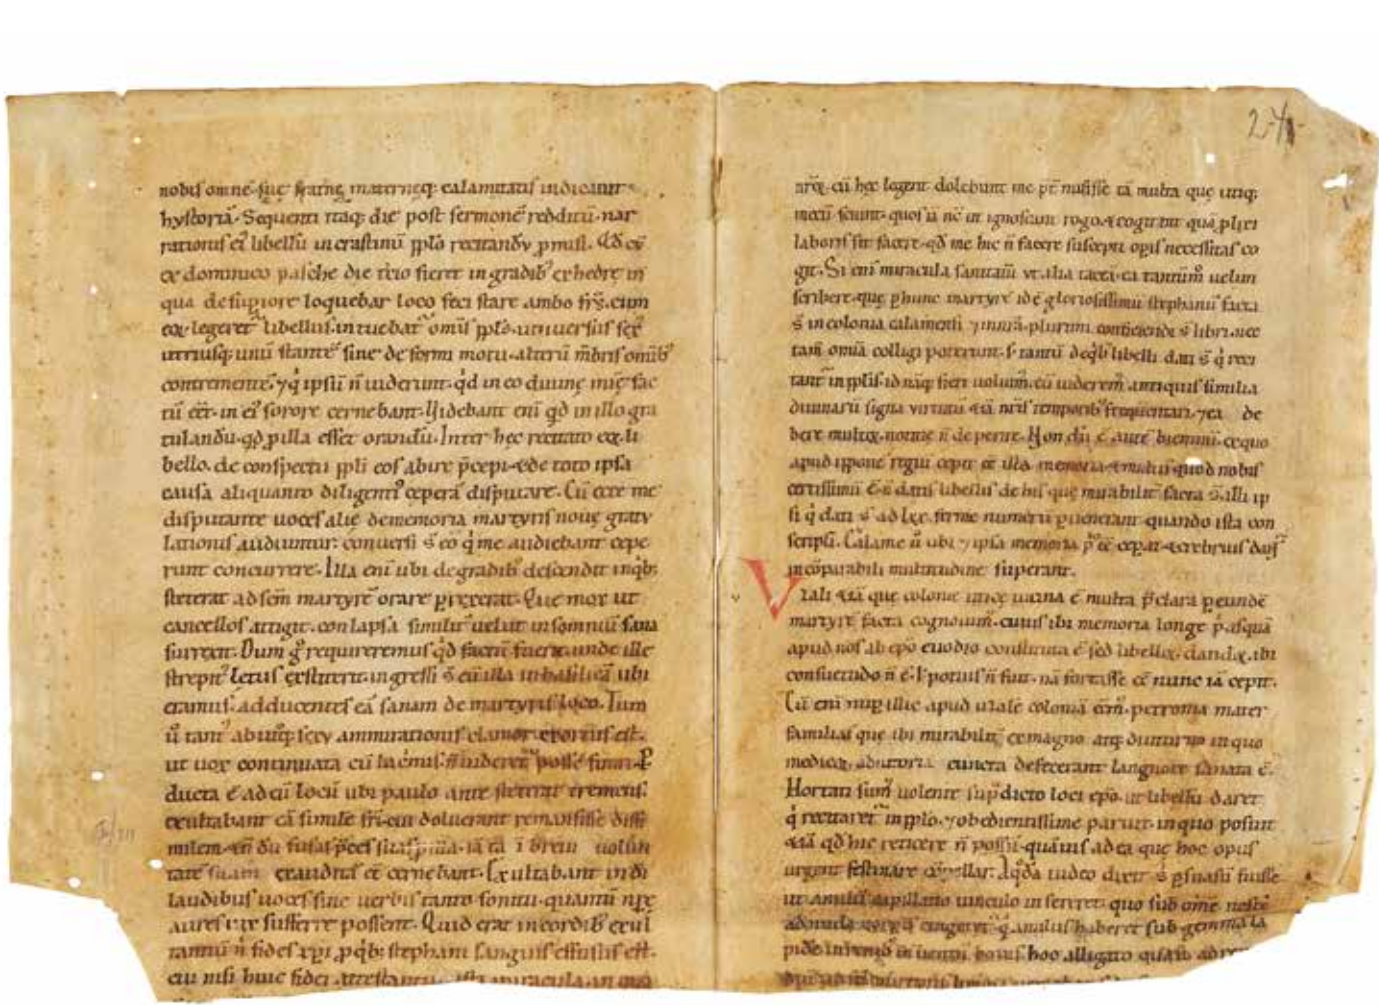 nobis omnē suę fratrisq; maternęq; calamitatis indicauit
hystoriā. Sequenti itaq; die post sermonē redditū nar
rationis ei libellū in crastinū ꝓplo recitandū ꝓmisi. Qd cū
ex dominico pasche die tr̄io fieret in gradib; exhedrę in
qua de suꝑiore loquebar loco feci stare ambo fr̄s. cum
eoꝝ legeret libellus. intuebat omīs ꝓpl̄s. uniuersus sex
utriusq; unū stantē sine deformi motu. alterū mēbris omīb;
contrementē. ⁊ q̇ ipsū n̄ uiderant. qd in eo diuinę mię fac
tū eēt. in ei sorore cernebant. Videbant enī qd in illo gra
tulandū. qd ꝑ illa esset orandū. Inter hec recitato eoꝝ li
bello. de conspectu ꝓpli eos abire p̄cepi. ⁊ de tota ipsa
causa aliquanto diligenti ceperā disputare. Cū ecce me
disputante uoces alię de memoria martyris nouę gratu
lationis audiuntur. conuersi s̄ eo q̇ me audiebant cepe
runt concurrere. Illa enī ubi de gradib; descendit in qb;
steterat ad scm̄ martyrē orare ꝑrexerat. Que mox ut
cancellos attigit. conlapsa similit uelut in somnum sana
surrexit. Dum g̊ requireremus qd factū fuerit. unde ille
strepit lętus extiterit. ingressi s̄ cū illa in basilicā ubi
eramus. adducentes eā sanam de martyris loco. Tum
ū tant ab utroq; sexu ammirationis clamor exortus est.
ut uox continuata cū lacrimis n̄ uideret posse finiri. P
ducta ē ad eū locū ubi paulo ante steterat tremens.
exultabant eā similē fr̄i. cui doluerant remansisse dissi
milem. ⁊ n̄ dū fusas p̄ces suas ꝓ illa. iā tā ī breui uolun
tatē suam exauditā eē cernebant. Exultabant in dī
laudibus uoces sine uerbis tanto sonitu. quantū nr̄ę
aures uix sufferre possent. Quid erat in cordib; exul
tantiū n̄ fides xp̄i ꝓ qb; stephani sanguis effusus est.
cui nisi huic fidei attestantur ista miracula. in qua
24
nr̄oꝝ. cū hęc legent dolebunt me p̄t misisse tā multa quę utiq;
mecū sciunt. quos iā nc̄ ut ignoscant rogo. ⁊ cogitent quā plixi
laboris sit facere. qd me hic n̄ facere suscepti opis necessitas co
git. Si enī miracula sanitatū ut alia tacea. ea tantūm uelim
scribere. quę ꝑ hunc martyrē id ē gloriosissimū stephanū facta
s̄ in colonia calamensi ⁊ in nr̄a. plurimi conficiendi s̄ libri. nec
tam omīa colligi poterunt. s; tantū de qb; libelli dati s̄ q̇ reci
tant in ꝓplis. id nāq; fieri uoluim. cū uiderem antiquis similia
diuinarū signa uirtutū etiā nr̄is temporib; frequentari. ⁊ ea de
bere multoꝝ. notitie n̄ deperire. Non dū ē autē biennium. ex quo
apud ippone regiū cepit eē ista memoria. ⁊ multis quod nobis
certissimū ē n̄ datis libellis de his quę mirabilit facta s̄. illi ip
si q̇ dati s̄ ad lxx. ferme numerū ꝑuenerant. quando ista con
scripsi. Calame ū ubi ⁊ ipsa memoria p̄ eē cepit. ⁊ crebrius dant
incōparabili multitudine superant.
Vzali etiā que colonie utice uicina ē multa p̄clara ꝑ eundē
martyrē facta cognouim. cuius ibi memoria longe p̄ us quā
apud nos ab ep̄o euodio constituta ē. sed libelloꝝ dandoꝝ ibi
consuetudo n̄ ē. l potius n̄ fuit. nā fortasse eē nunc iā cepit.
Cū enī nuꝑ illic apud uzalē coloniā eēm. petronia mater
familias que ibi mirabilit ex magno atq; diuturno in quo
medicoꝝ adiutoria cuncta defecerant languore sanata ē.
Hortati sum uolente supdicto loci ep̄o. ut libellū daret
q̇ recitaret in ꝓplo. ⁊ obedientissime paruit. in quo posuit
etiā qd hic reticere n̄ possū. quāuis ad ea quę hoc opus
urgent festinare cōpellar. A qda iudeo dixit s̄ ꝑsuasū fuisse
ut anulū capillatio uinculo insereret. quo sub om̄e ueste
ad nuda corporis cingeret. q̇ anulus haberet sub gemma la
pidē inuentū in renib; bouis. hoc alligato quasi ad re